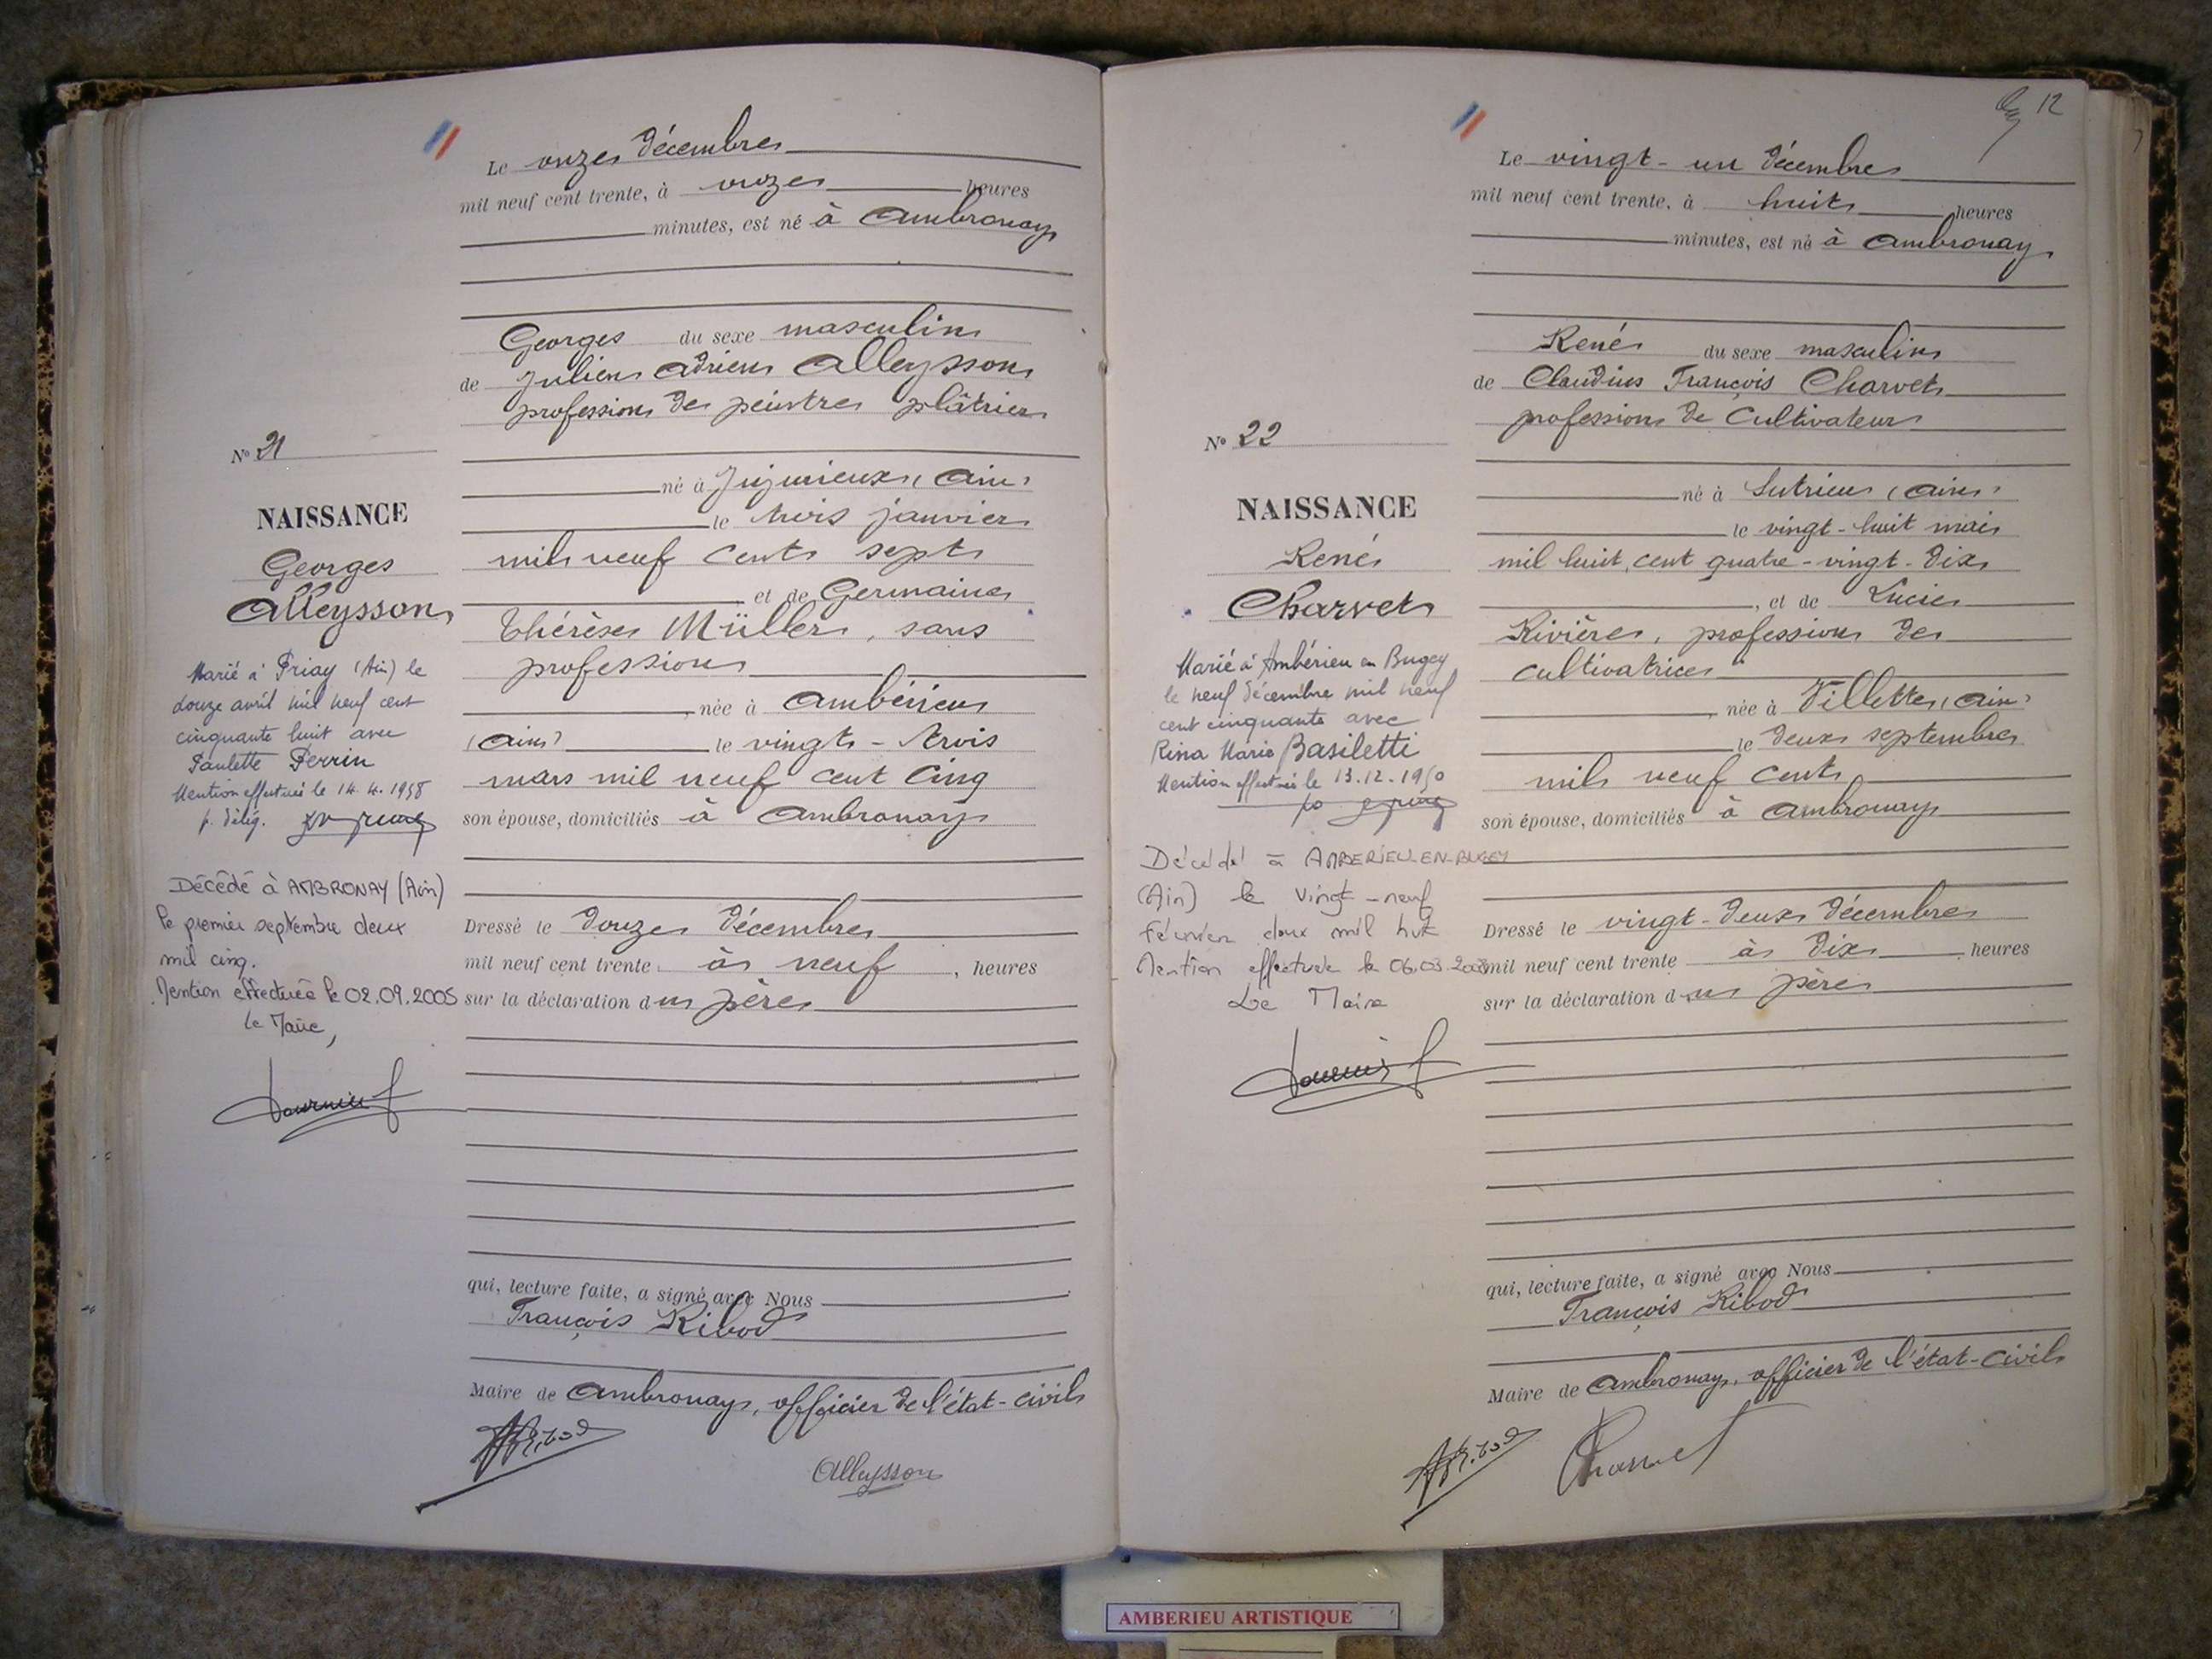 Le onze décembre
mil neuf cent trente, à onze heures
minutes, est né à Ambronay
Georges du sexe masculin
de Julien Adrien Alleysson
profession de peintre plâtrier
né à Jujurieux (Ain)
le trois janvier
mil neuf cent sept
et de Germaine
Thérèse Müller, sans
profession
née à Ambérieu
(Ain) le vingt-trois
mars mil neuf cent cinq
son épouse, domiciliés à Ambronay
Dressé le douze décembre
mil neuf cent trente à neuf, heures
sur la déclaration du père
qui, lecture faite, a signé avec Nous
François Ribod
Maire de Ambronay, officier de l'état-civil
Alleysson
N° 21
NAISSANCE
Georges
Alleysson
Marié à Priay (Ain) le
douze avril mil neuf cent
cinquante huit avec
Paulette Perrin
Mention effectuée le 14.4.1958
p. délég.
Décédé à AMBRONAY (Ain)
le premier septembre deux
mil cinq.
Mention effectuée le 02.09.2005
le Maire,
12
Le vingt-un décembre
mil neuf cent trente, à huit heures
minutes, est né à Ambronay
René du sexe masculin
de Claudius François Charvet
profession de Cultivateur
né à Sutrieu (Ain)
le vingt-huit mai
mil huit cent quatre-vingt-dix
, et de Lucie
Rivière, profession de
cultivatrice
, née à Villette (Ain)
le deux septembre
mil neuf cent
son épouse, domiciliés à Ambronay
Dressé le vingt-deux décembre
mil neuf cent trente à dix heures
sur la déclaration du père
qui, lecture faite, a signé avec Nous
François Ribod
Maire de Ambronay, officier de l'état-civil
Charvet
N° 22
NAISSANCE
René
Charvet
Marié à Ambérieu en Bugey
le neuf décembre mil neuf
cent cinquante avec
Rina Maria Basiletti
Mention effectuée le 13.12.1950
Décédé à AMBERIEU-EN-BUGEY
(Ain) le vingt-neuf
février deux mil huit
Mention effectuée le 06.03.2008
Le Maire
AMBERIEU ARTISTIQUE